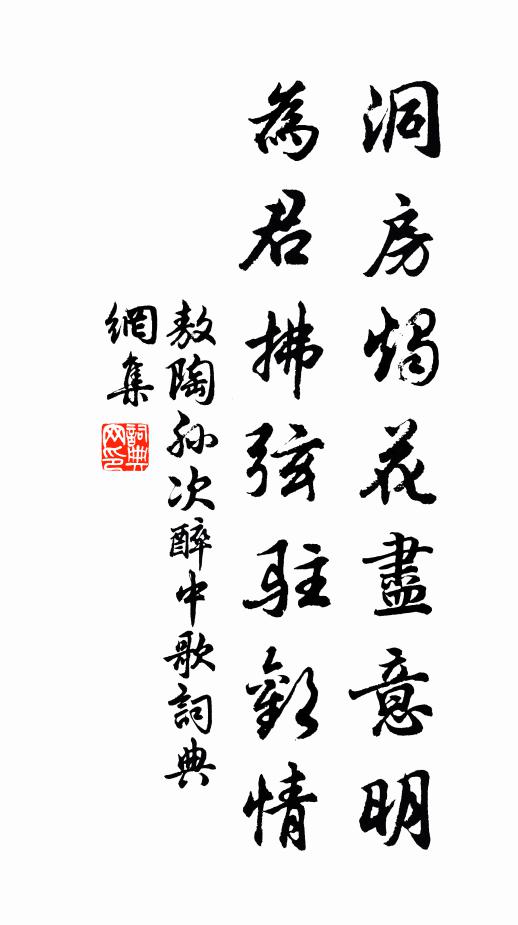 洞房燭花盡意明
為君拂弦駐歡情
敖陶孫次醉中歌詞典
網集
詞典網印